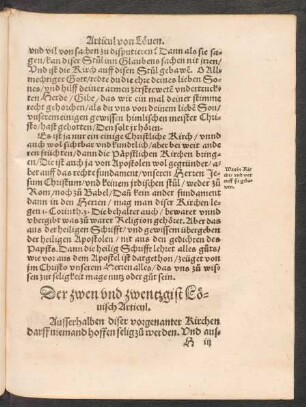 Articul von Löuen.
vnd vil von sachen zu disputieren? Dann als sie sa-
gen / kan diser Stůl inn Glaubens sachen nit irren /
Vnd ist die Kirch auff disen Stůl gebawt. O All-
mechtiger Gott / rette du die ehre deines lieben So-
nes / vnd hilff deiner armen zerstrewetē vndertruck-
ten Herde / Gibe / das wir ein mal deiner stimme
recht gehorchen / als du vns von deinem liebē Son /
vnserem einigen gewissen himlischen meister Chri-
sto / hast gebotten / Den solt jr hören.
Es ist ja nur ein einige Christliche Kirch / vnnd
auch wol sichtbar vnd kundtlich / aber bei weit ande
ren früchten / dann die Päpstlichen Kirchen bring-
en / Die ist auch ja von Apostolen wol gegründet / a-
ber auff das rechte fundament / vnseren Herren Je-
sum Christum / vnd keinem jrdischen stůl / weder zu
Rom / noch zu Babel / Daß kein ander fundament
dann in den Herren / mag man diser Kirchen lege-
gen 1. Corinth. 3. Die behalter auch / bewaret vnnd
vbergibt was zu warer Religion gehöret / Aber das
aus der heiligen Schrifft / vnd gewissem übergeben
der heiligen Apostolen / nit aus den gedichten des
Papsts. Dann die heilig Schrifft lehret alles gůts /
wie vor aus dem Apostel ist dargethon / zeüget von
jm Christo vnserem Herren alles / das vns zu wis-
sen zur seligkeit mage nutz oder gůt sein.
Warin Kir
che vnd wor
auff sie geba
wen.
Der zwen vnd zwentzgist Lö-
uisch Articul.
Ausserhalben diser vorgenanter Kirchen
darff niemand hoffen selig zů werden. Vnd aus-
H iij